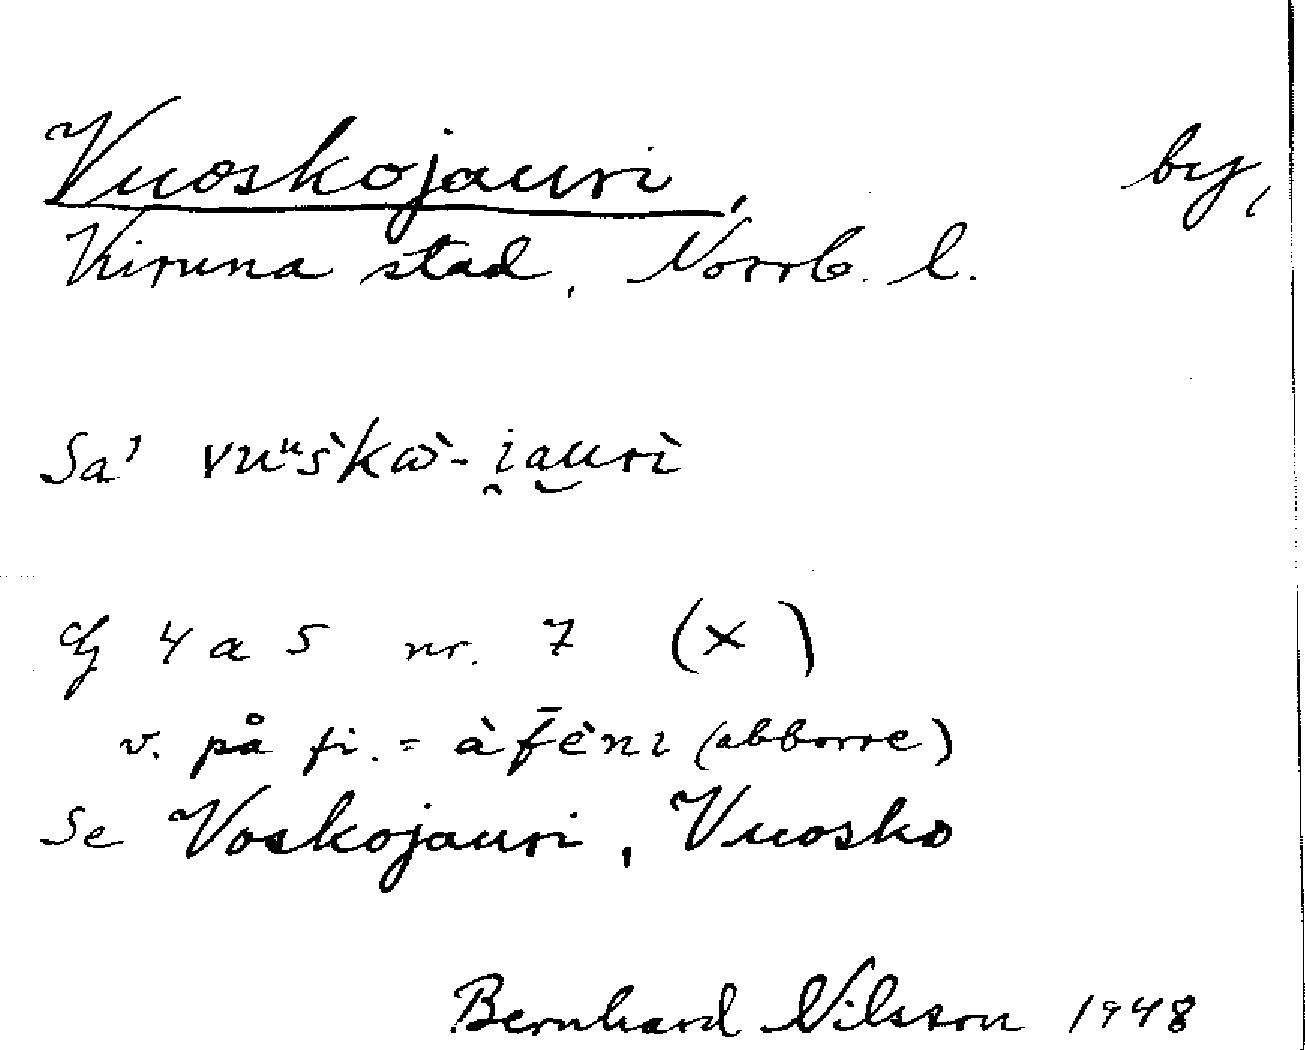 Vuoskojauri, by,
Kiruna stad, Norrb. l.
Sa' vuᵘs̀kὼ-i̯au̯rì
4 a 5 nr. 7 (x)
v. på fi. = àf̄ènı (abborre)
Se Voskojauri, Vuosko
Bernhard Nilsson 1948